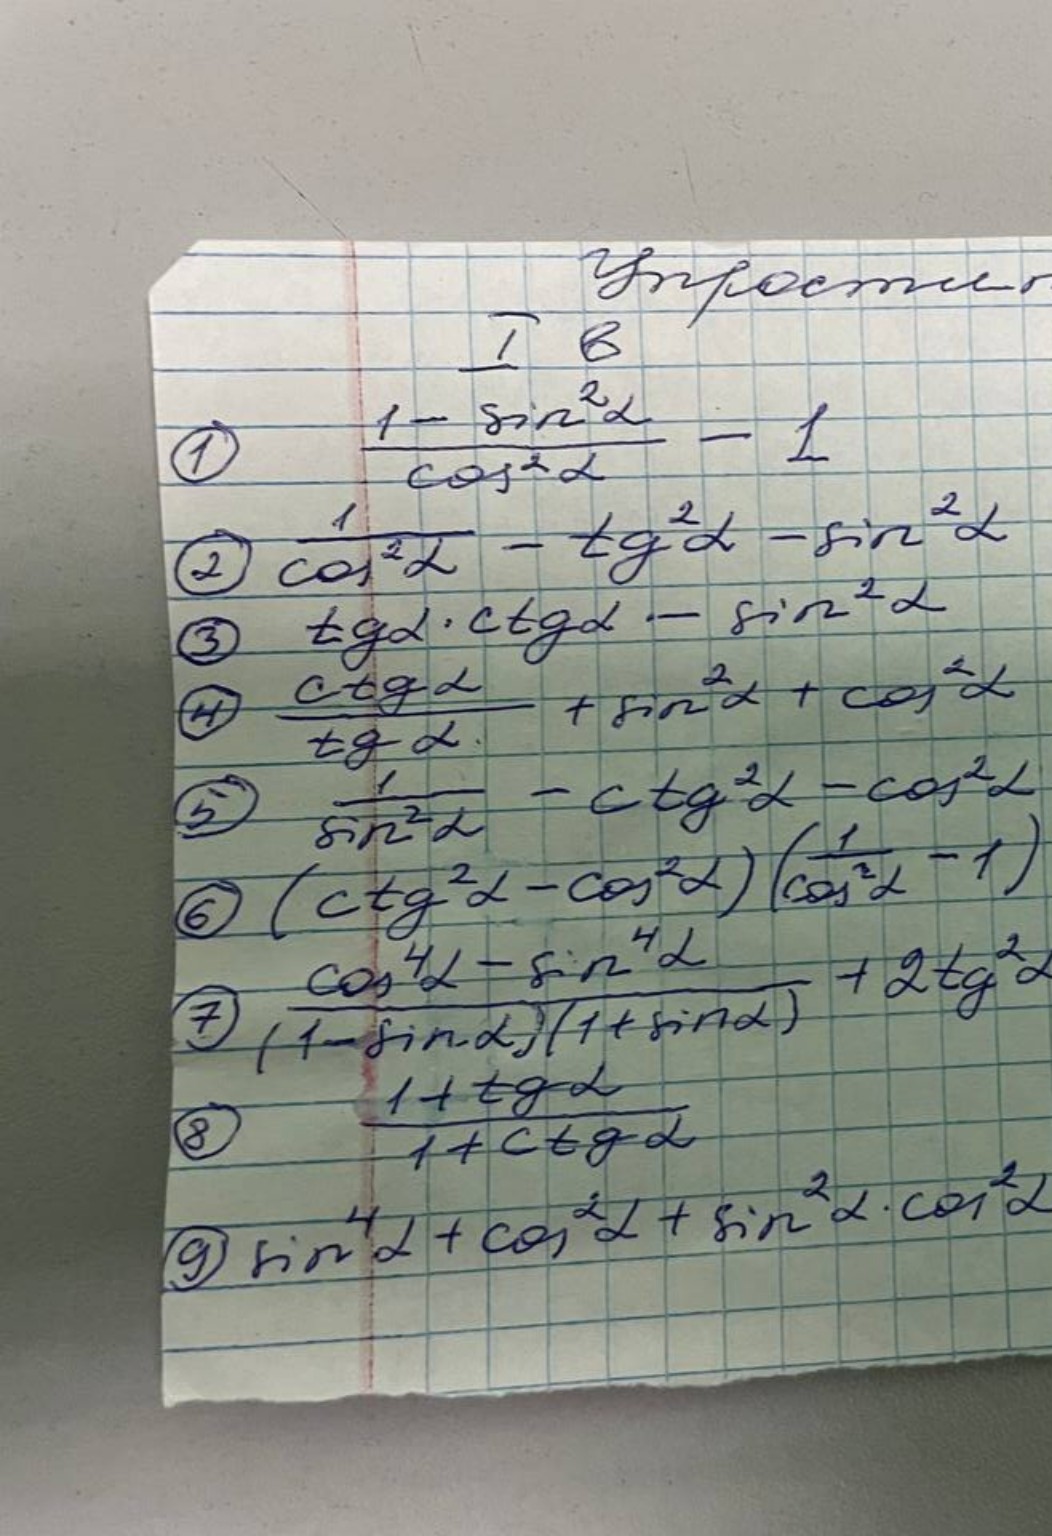 Упростит
I в
① (1 - sin²α)/(cos²α) - 1
② 1/(cos²α) - tg²α - sin²α
③ tgα · ctgα - sin²α
④ (ctgα)/(tgα) + sin²α + cos²α
⑤ 1/(sin²α) - ctg²α - cos²α
⑥ (ctg²α - cos²α)(1/(cos²α) - 1)
⑦ (cos⁴α - sin⁴α)/((1 - sinα)(1 + sinα)) + 2tg²α
⑧ (1 + tgα)/(1 + ctgα)
⑨ sin⁴α + cos²α + sin²α · cos²α